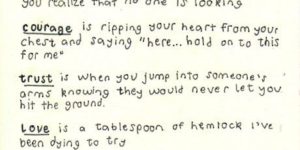 you realize that no one is looking
courage is ripping your heart from your
chest and saying "here... hold on to this
for me"
trust is when you jump into someone's
arms knowing they would never let you
hit the ground.
love is a tablespoon of hemlock i've
been dying to try